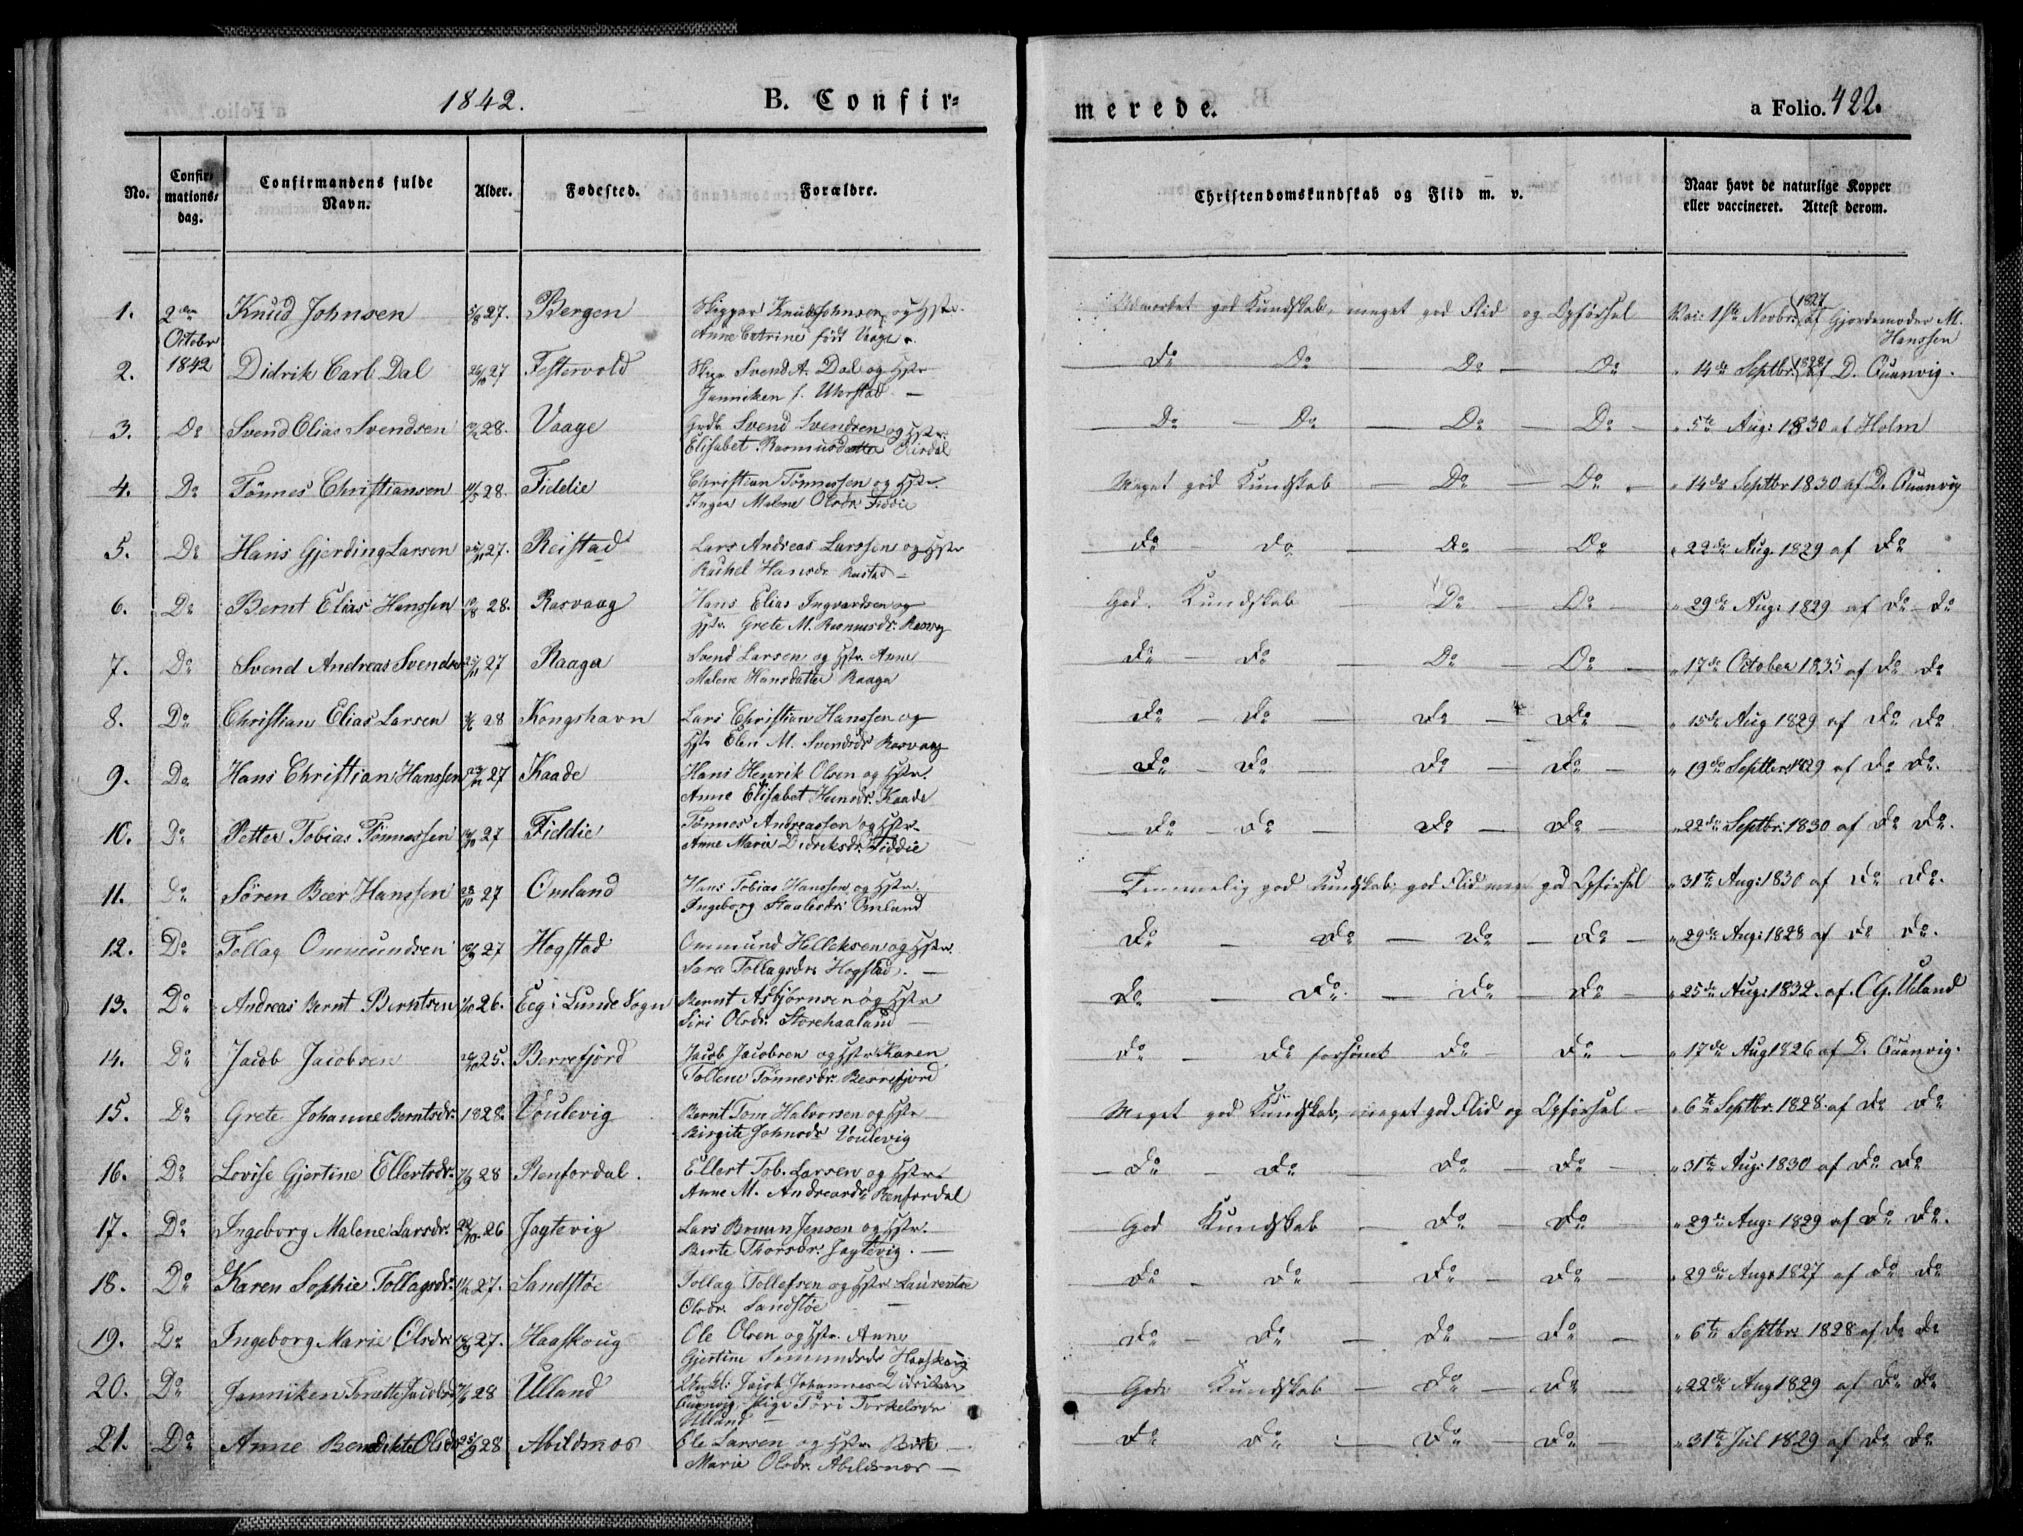 1842. B. Confir= merede. a Folio. 422.
No. Confirmations-dag. Confirmandens fulde Navn. Alder. Fødested. Forældre. Christendomskundskab og Flid m. v. Naar havt de naturlige Kopper eller vaccineret. Attest derom.
1. 2den October 1842 Knud Johnsen 5/8 27. Bergen Skipper Knud Johnsen og Hstr. Anne Catrine født Vaage. Udmerket god Kundskab, meget god Flid og Opførsel Vac: 1ste Novbr: 1827 af Gjordemoder M. Hanssen
2. Didrik Carl Dal 27 Testervold Skip Svend A. Dal og Hstr Janniken f. Uhrstad. — Do Do Do Do " 14de Septbr: 1828 af D. Guanvig.
3. Do Svend Elias Svendsen 28. Vaage Svend Svendsen og Hstr: Elisabet Rasmusdatter Do Do Do Do " 5te Aug: 1830 af Holm
4. Do Tønnes Christiansen 28. Fiddie Christian Tønnessen og Hstr. Inger Malene Olsdr. Fiddie Meget god Kundskab Do Do " 14de Septbr 1830 af D. Guanvig
5. Do Hans Gjerding Larsen 27. Reistad Lars Andreas Larssen og Hstr Rachel Hansdr. Do Do Do Do " 22de Aug. 1829 af Do
6. Do Bernt Elias Hanssen 28. Rasvaag Hans Elias Ingvardsen og Hstr. Grete M. Rasmusdr. Rasvag God Kundskab Do Do " 29de Aug: 1829 af Do Do
7. Do Svend Andreas Svends 27 Raaga Svend Larsen og Hstr Anne Malene Hansdatter Raaga Do Do Do Do " 17de October 1835 af Do Do
8. Do Christian Elias Larsen 28 Kongshavn Lars Christian Hanssen og Hstr Elen M. Svendsdr Rasvaag Do Do Do Do " 15de Aug 1829 af Do Do
9. Do Hans Christian Hanssen 27 Kaade Hans Henrik Olsen og Hstr. Anne Elisabet Hansdr. Kaade Do Do Do Do " 19de Septbr 1829 af Do Do.
10. Do Petter Tobias Tønnessen 27 Fiddie Tønnes Andreassen og Hstr. Anne Marie Didriksdr. Fiddie Do Do Do Do " 22de Septbr. 1830 af Do Do.
11. Do Søren Beer Hanssen 28/10 27 Omland Hans Tobias Hanssen og Hstr. Ingeborg Staalesdr: Omland Temmelig god Kundskab, god Flid god Opførsel " 31te Aug: 1830 af Do Do.
12. Do Tollag Ommundsen 27 Hogstad Ommund Helleksen og Hstr. Sara Tollagsdr Hogstad. — Do Do Do Do " 29de Aug: 1828 af Do Do.
13. Do Andreas Bernt Berntsen 26. Eeg i Lunde Sogn Bernt Asbjørnsen og Hstr Siri Olsdr. Storehaaland Do Do Do Do " 25de Aug: 1832. af C G. Ueland
14. Do Jacob Jacobsen 25. Berrefjord Jacob Jacobsen og Hstr Karen Tollene Tønnesdr. Berrefjord Do Do forsømt Do Do " 17de Aug 1826 af D. Guanvig.
15. Do Grete Johanne Berntsdr. 1828. Voulevig Bernt Tom Halvorsen og Hstr Birgite Johnsdr Voulevig Meget god Kundskab, meget god Flid og Opførsel " 6te Septbr. 1828 af Do Do
16. Do Lovise Gjertine Ellertsdr. 28 Renfordal. Ellert Tob. Larsen og Hstr. Anne M. Andreasdr Renfordal Do Do Do Do " 31te Aug: 1830 af Do Do
17. Do Ingeborg Malene Larsdr. 22/10 26 Jagtevig Lars Bruun Jensen og Hstr. Berte Thorsdr. Jagtevig. — God Kundskab Do Do " 29de Aug: 1829 af Do Do.
18. Do Karen Sophie Tollagsdr. 27. Sandstøe Tollag Tollefsen og Hstr Laurentze Olsdr. Sandstøe Do Do Do Do " 29de Aug: 1827 af Do Do
19. Do Ingeborg Marie Olsdr: 27. Haaskoug Ole Olsen og Hstr. Anne Gjertine Simundsdr Haaskoug Do Do Do Do " 6te Septbr: 1828 af Do Do
20. Do Janniken Torette Jacobsdr 28 Ulland Jacob Johannes Didriksen Guanvig Pige Tori Torkelsdr Ulland God Kundskab Do Do " 22de Aug 1829 af Do Do
21. Do Anne Bendikte Olsdr 25/9 28 Abildsnes Ole Larsen og Hstr. Berte Marie Olsdr. Abildsnes — Do Do Do Do " 31te Jul 1829 af Do Do